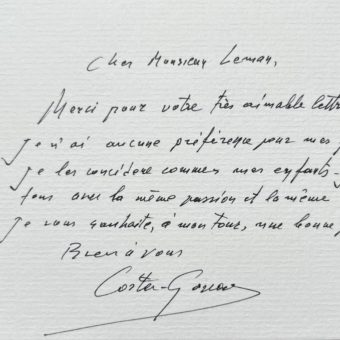 Cher Monsieur Leman,
Merci pour votre très aimable lettre
Je n'ai aucune préférence pour mes
je les considère commes mes enfants-
tous avec la même passion et la même
Je vous souhaite, à mon tour, une bonne
Bien à vous
Costa-Gavras